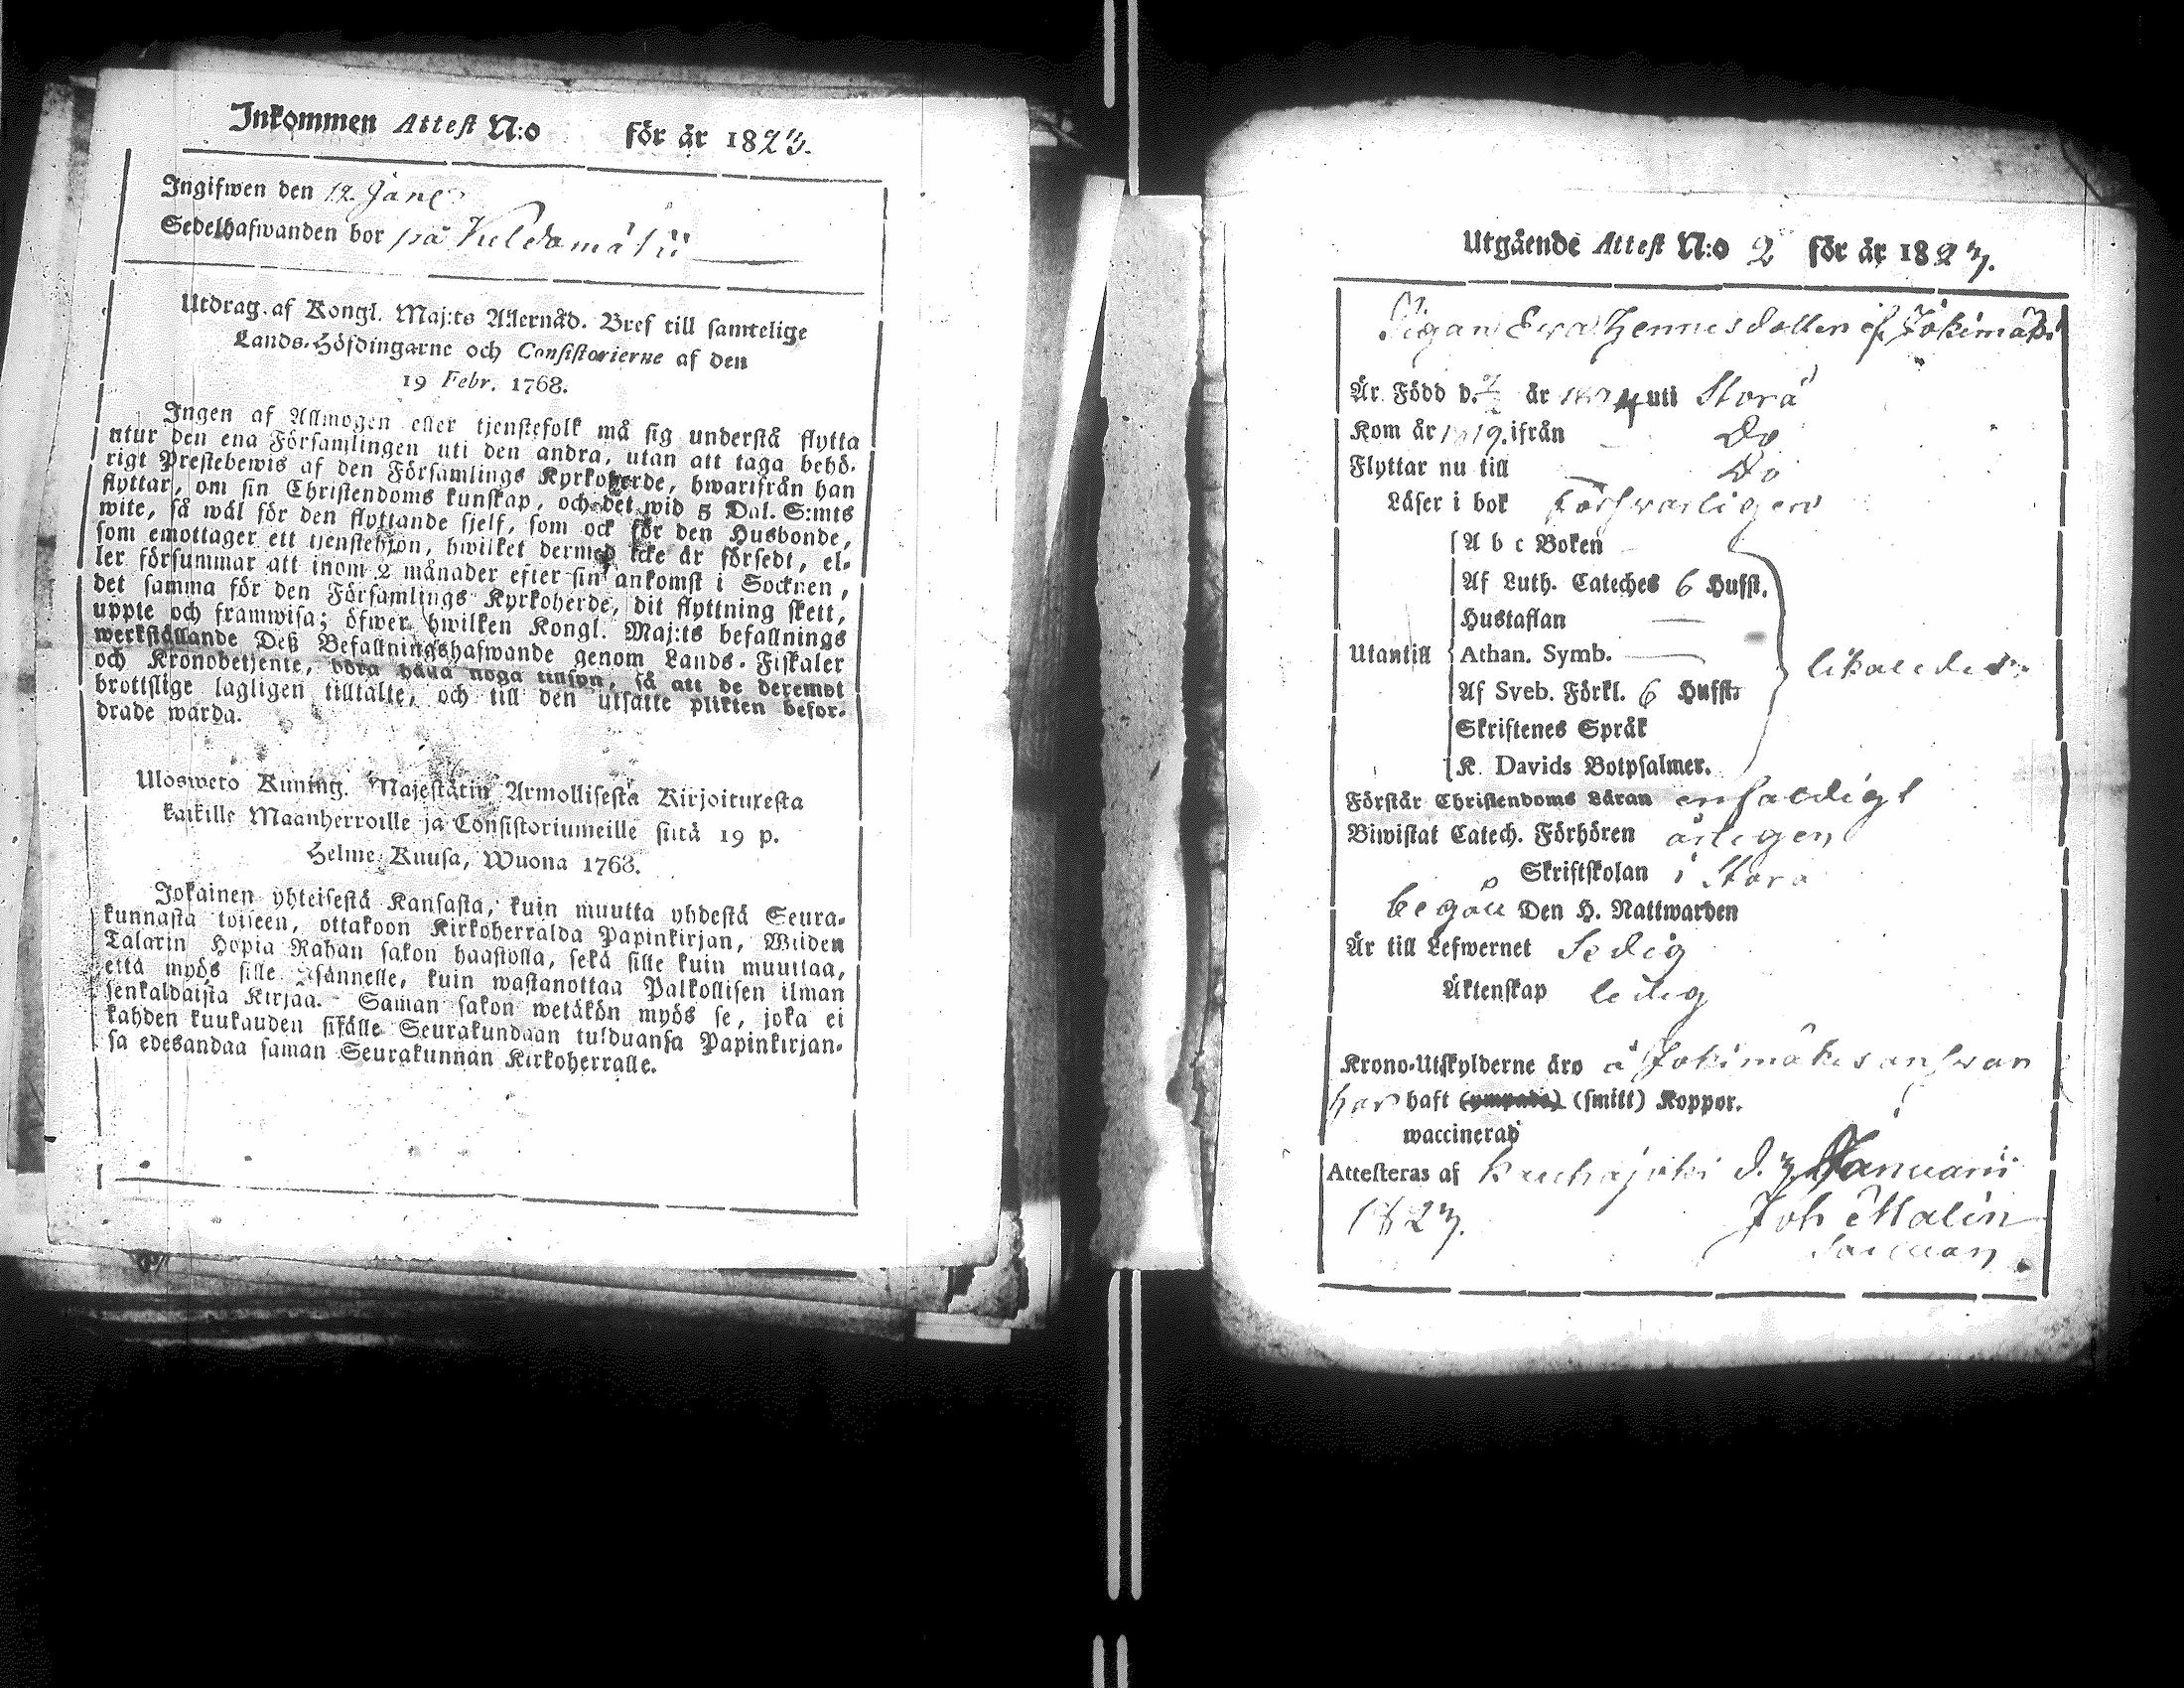 Inkommen Attest N:o för år 1823.
Ingifwen den 12. Jan
Sedelhafwanden bor på
Utdrag af Kongl. Maj:ts Allernåd. Bref till samtelige
Lands-Höfdingarne och Consistorierne af den
19 Febr. 1768.
Ingen af Allmogen eller tjenstefolk må sig understå flytta
utur den ena Församlingen uti den andra, utan att taga behö-
rigt Prestebewis af den Församlings Kyrkoherde, hwarifrån han
flyttar, om sin Christendoms kunskap, och det wid 5 Dal. S:mts
wite, så wäl för den flyttande sjelf, som ock för den Husbonde,
som emottager ett tjenstehjon, hwilket dermed icke är försedt, el-
ler försummar att inom 2 månader efter sin ankomst i Socknen,
det samma för den Församlings Kyrkoherde, dit flyttning skett,
uppte och framwisa; öfwer hwilken Kongl. Maj:ts befallnings
werkställande Deß Befallningshafwande genom Lands-Fiskaler
och Kronobetjente, böra hålla noga tillsyn, så att de deremot
brottslige lagligen tilltalte, och till den utsatte plikten befor-
drade warda.
Ulosweto Kuning. Majestätin Armollisesta Kirjoituxesta
kaikille Maanherroille ja Consistoriumeille siitä 19 p.
Helme Kuusa, Wuona 1768.
Jokainen yhteisestä Kansasta, kuin muutta yhdestä Seura-
kunnasta toiseen, ottakoon Kirkoherralda Papinkirjan, Wiiden
Talarin Hopia Rahan sakon haastolla, sekä sille kuin muuttaa,
että myös sille Isännelle, kuin wastanottaa Palkollisen ilman
senkaldaista Kirjaa. Saman sakon wetäkön myös se, joka ei
kahden kuukauden sisälle Seurakundaan tulduansa Papinkirjan-
sa edesandaa saman Seurakunnan Kirkoherralle.
Utgående Attest N:o 2 för år 1823.
Pigan Eva Hennesdotter if Jokimäki
Är Född d. 2/2 år 1804 uti Storå
Kom år 1819. ifrån Do
Flyttar nu till Do
Läser i bok Försvarligen
A b c Boken
Af Luth. Cateches 6 Hufst.
Hustaflan —
Utantill Athan. Symb. — likaledes
Af Sveb. Förkl. 6 Hufst.
Skriftenes Språk
K. Davids Botpsalmer.
Förstår Christendoms Läran enfaldigt
Biwistat Catech. Förhören årligen
Skriftskolan i Storå
begått Den H. Nattwarden
Är till Lefwernet Sedig
Äktenskap ledig
Krono-Utskylderne äro å Jokimäkis answar
har haft (ympade) (smitt) Koppor.
waccinerad
Attesteras af Kauhajoki d. 3 Januarii
1823. Joh Malin